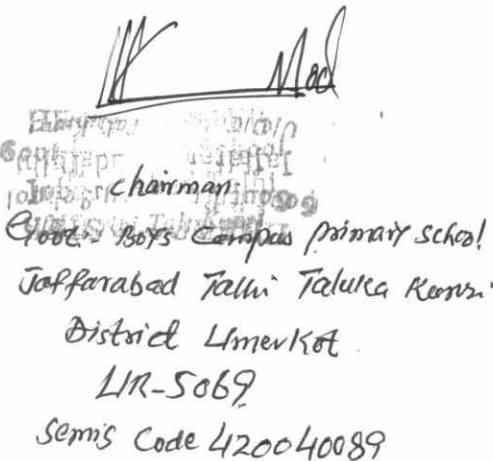 chairman
Govt: Boys Campus primary school
Jaffarabad Talhi Taluka Kunri
District Umerkot
UR-5069
Semis Code 420040089